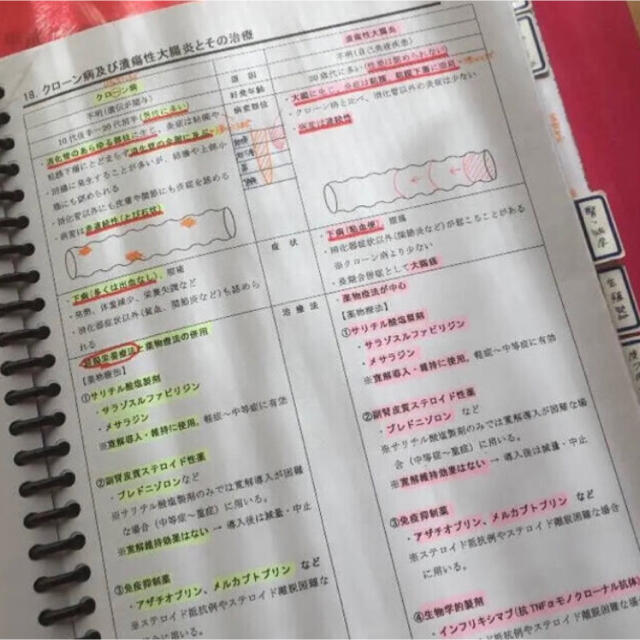 18. クローン病及び潰瘍性大腸炎とその治療
クローン病
不明(遺伝が関与)
10代後半～20代前半(男性に多い)
・消化管のあらゆる部位に生じ、炎症は粘膜や
粘膜下層にとどまらず消化管の全層に及ぶ
・回腸に発生することが多いが、結腸や上部小
腸にも認められる
・消化管以外にも皮膚や関節にも炎症を認める
・病変は非連続性(とび石状)
・下痢(多くは出血なし)、腹痛
・発熱、体重減少、栄養失調など
・消化器症状以外(貧血、関節炎など)も認めら
れる
栄養療法と薬物療法の併用
【薬物療法】
①サリチル酸塩製剤
・サラゾスルファピリジン
・メサラジン
※寛解導入・維持に使用。軽症～中等症に有効
②副腎皮質ステロイド性薬
・プレドニゾロンなど
※サリチル酸塩製剤のみでは寛解導入が困難
な場合(中等症～重症)に用いる。
※寛解維持効果はない → 導入後は減量・中止
③免疫抑制薬
・アザチオプリン、メルカプトプリン など
※ステロイド抵抗例やステロイド離脱困難な
場合に用いる。
原因
好発年齢
病変部位
症状
治療法
潰瘍性大腸炎
不明(自己免疫疾患)
20歳代に多い(性差は認められない)
・大腸に生じ、炎症は粘膜、粘膜下層に限局
・クローン病と比べ、消化管以外の炎症は少ない
・病変は連続性
・下痢(粘血便)、腹痛
・消化器症状以外(関節炎など)が起こることがある
※クローン病より少ない
・長期合併症として大腸癌
・薬物療法が中心
【薬物療法】
①サリチル酸塩製剤
・サラゾスルファピリジン
・メサラジン
※寛解導入・維持に使用。軽症～中等症に有効
②副腎皮質ステロイド性薬
・プレドニゾロン など
※サリチル酸塩製剤のみでは寛解導入が困難な場
合(中等症～重症)に用いる。
※寛解維持効果はない → 導入後は減量・中止
③免疫抑制薬
・アザチオプリン、メルカプトプリン など
※ステロイド抵抗例やステロイド離脱困難な場合
に用いる。
④生物学的製剤
・インフリキシマブ(抗TNFαモノクローナル抗体)